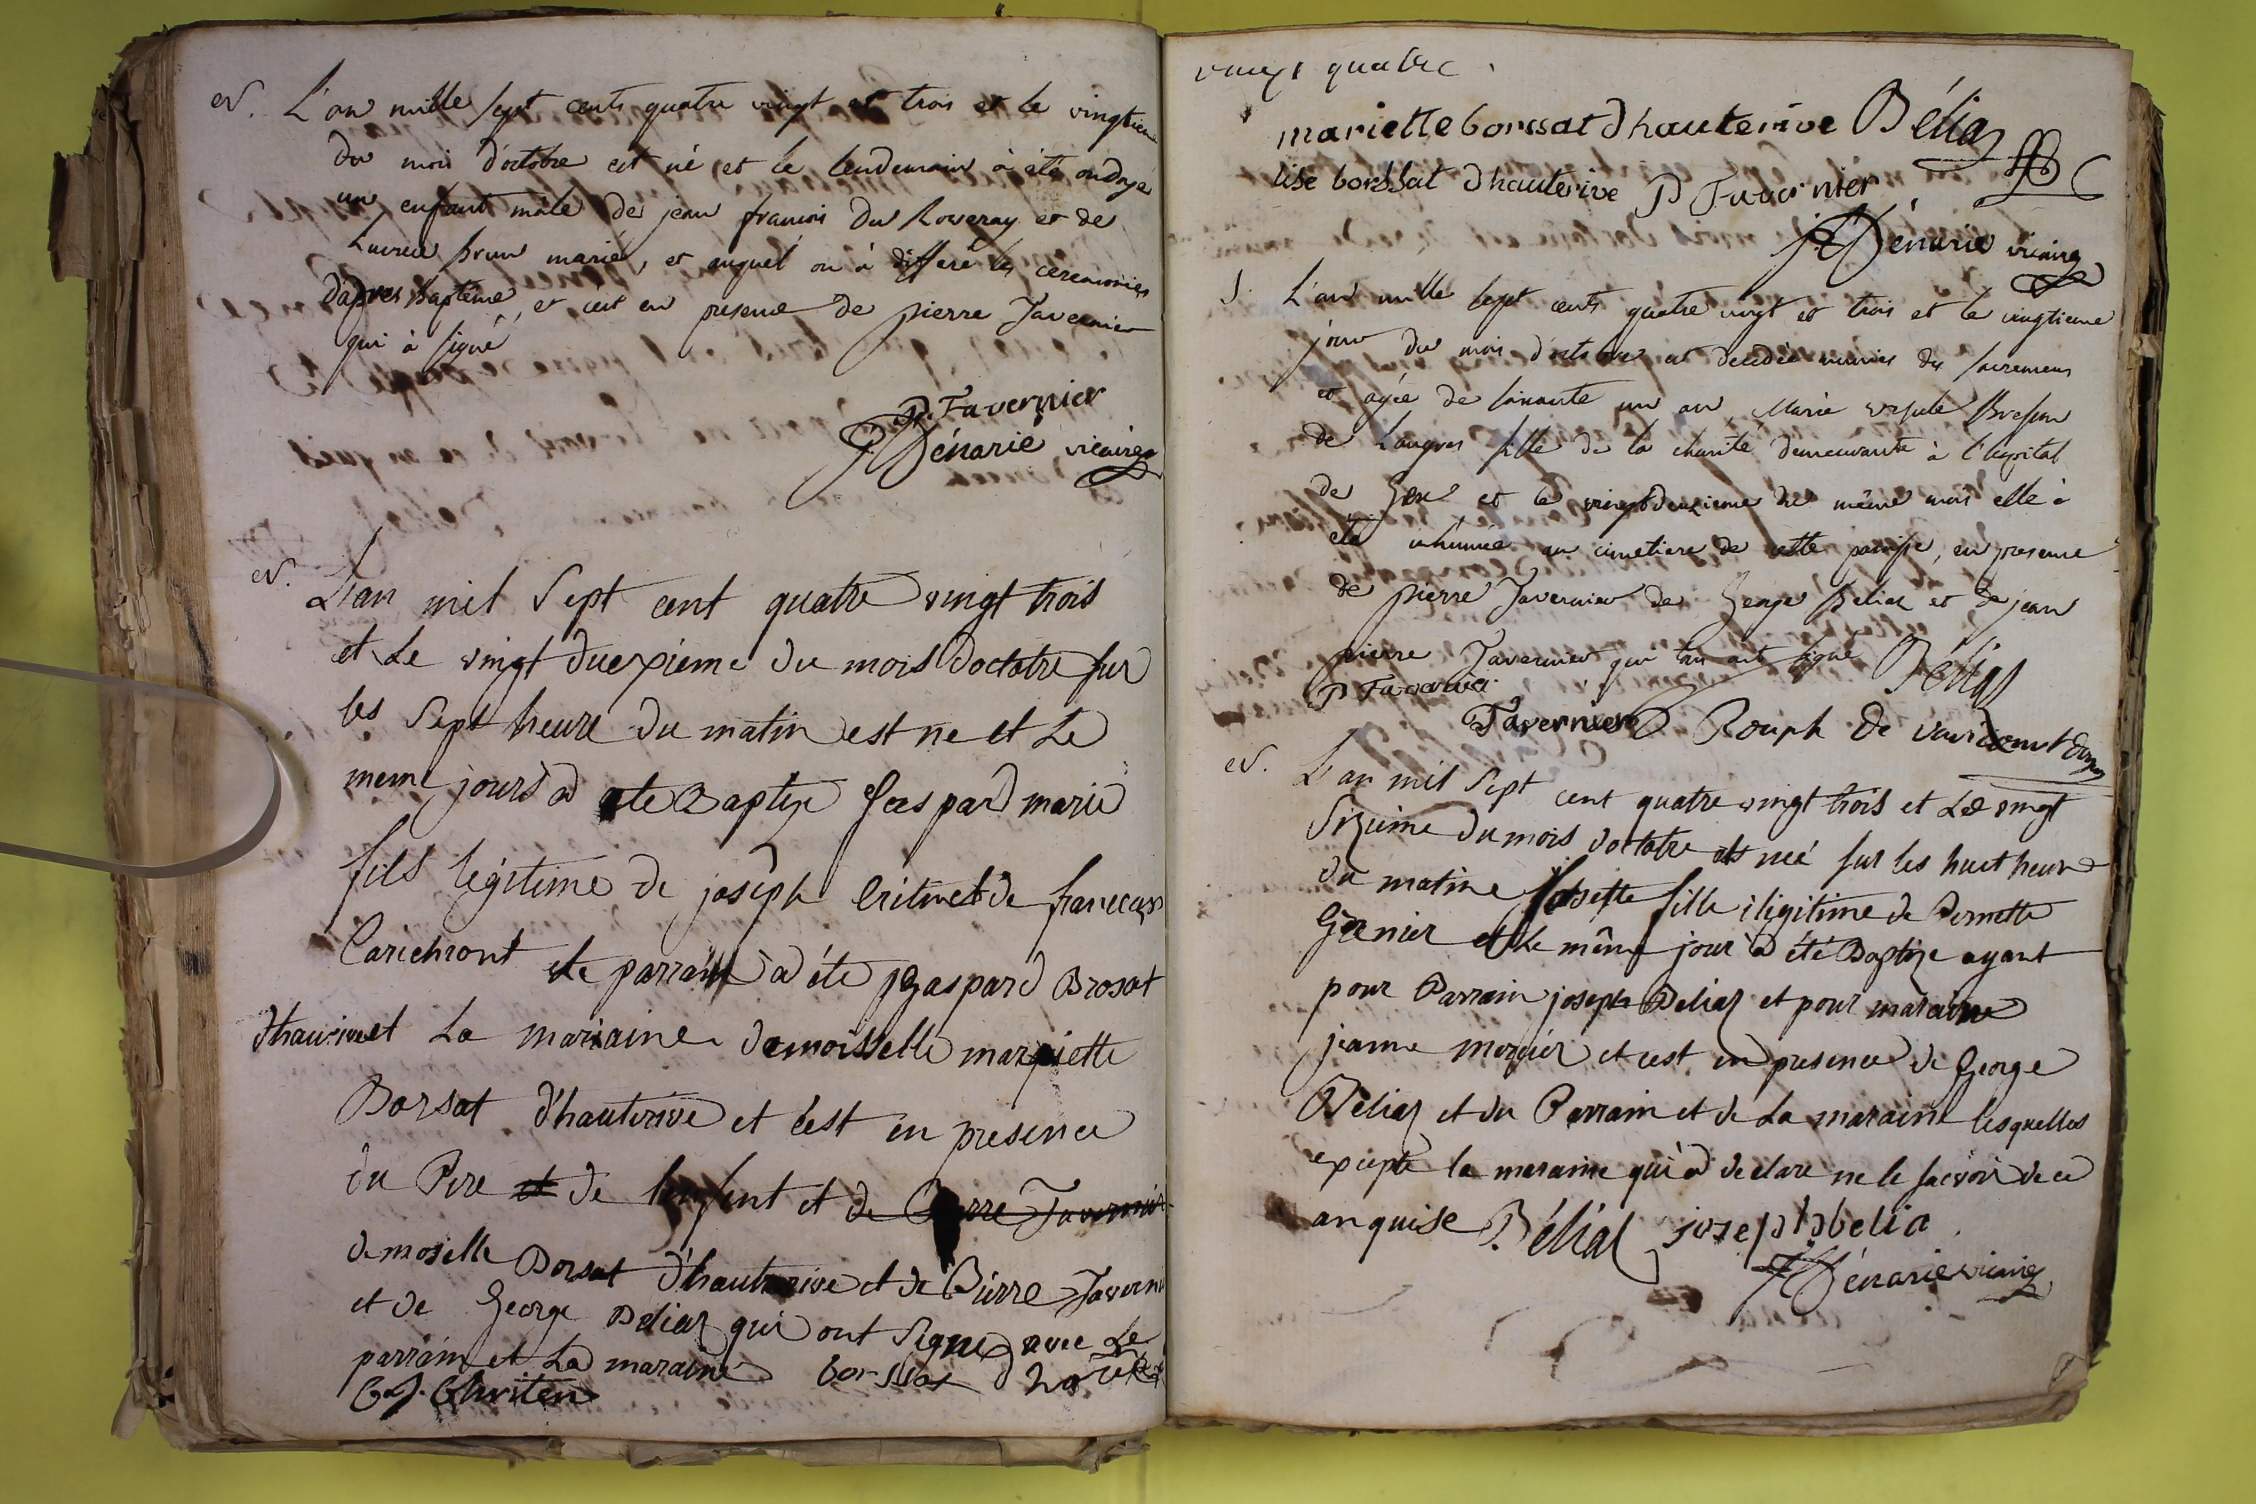 N. L'an mille sept cents quatre vingt et trois et le vingtieme
du mois d'octobre est né et le lendemain à été ondoyé
un enfant mâle de jean francois du Roveray et de
brun mariés, et auquel on à differé les ceremonies
d'apres baptême, et c'est en presence de pierre Tavernier
qui à signé
P. Tavernier
Dénarié vicaire
N. L'an mil sept cent quatre vingt trois
et Le vingt duexieme du mois d'octobre sur
les sept heure du matin est ne et Le
meme jours a ete Baptize Gaspard marie
fils legitime de joseph et de
et Le parrain a été Gaspard Brosat
et La maraine demoisselle mariette
Borsat d'hauterive et c'est en presence
du Pere et de l'enfent et de Pierre Tavernier
demoselle Borsat d'hauterive et de Pierre Tavernier
et de George Beliaz qui ont signe avec Le
parrain et La maraine borssat d
Chriten
vingt quatre.
mariette borssat dhauterive Béliaz
lise borssat dhauterive P Tavernier
Dénarié vicaire
S. L'an mille sept cents quatre vingt et trois et le vingtieme
jour du mois d'octobre est decedée munies des sacremens
et agée de soixante un an Marie ursule
de Langres fille de la charité demeurante à l'hopital
de Gex et le vingtdeuxieme du même mois elle à
été inhumée au cimetiere de cette paroisse, en presence
de pierre Tavernier de George Beliaz et de jean
pierre Tavernier qui tous ont signé Béliaz
P Tavernier
Tavernier Rouph de
N. L'an mil sept cent quatre vingt trois et Le vingt
sizieme du mois d'octobre est neé sur les huit heure
du matine Josette fille iligitime de Pernette
Grenier et Le même jour a été Baptize ayant
pour Parrain joseph Beliaz et pour maraine
jeanne mercier et cest en presence de George
Beliaz et du Parrain et de La maraine lesquelles
exsepte la maraine qui a declare ne le sacvoir de ce
anquise Béliaz joseph belia
Dénarié vicaire